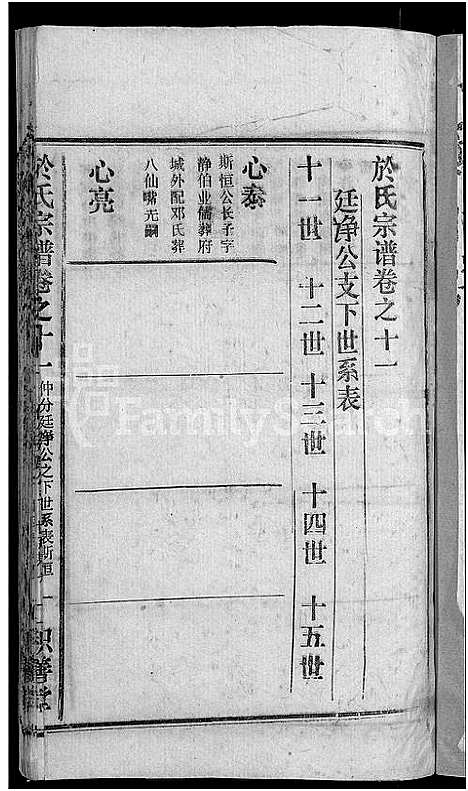 於氏宗谱卷之十一
廷诤公支下世系表
十一世 十二世 十三世 十四世 十五世
心泰
斯恒公长子字
静伯业儒葬府
城外配邓氏葬
八仙嘴光嗣
心亮
於氏宗谱卷之十一 仲分廷诤公之下世系表斯恒 一 积善堂
FamilySearch